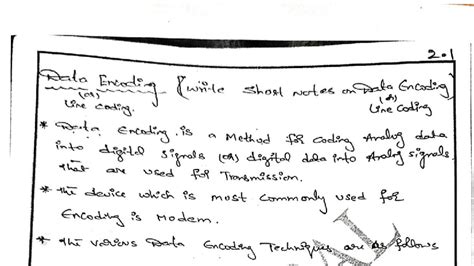 2.1
Data Encoding (write short notes on Data Encoding)
(or) (or)
Line Coding. Line Coding
* Data Encoding is a Method for Coding Analog data
into digital signals (or) digital data into Analog signals.
that are used for Transmission.
* the device which is most commonly used for
Encoding is Modem.
* the various Data Encoding Techniques are as follows